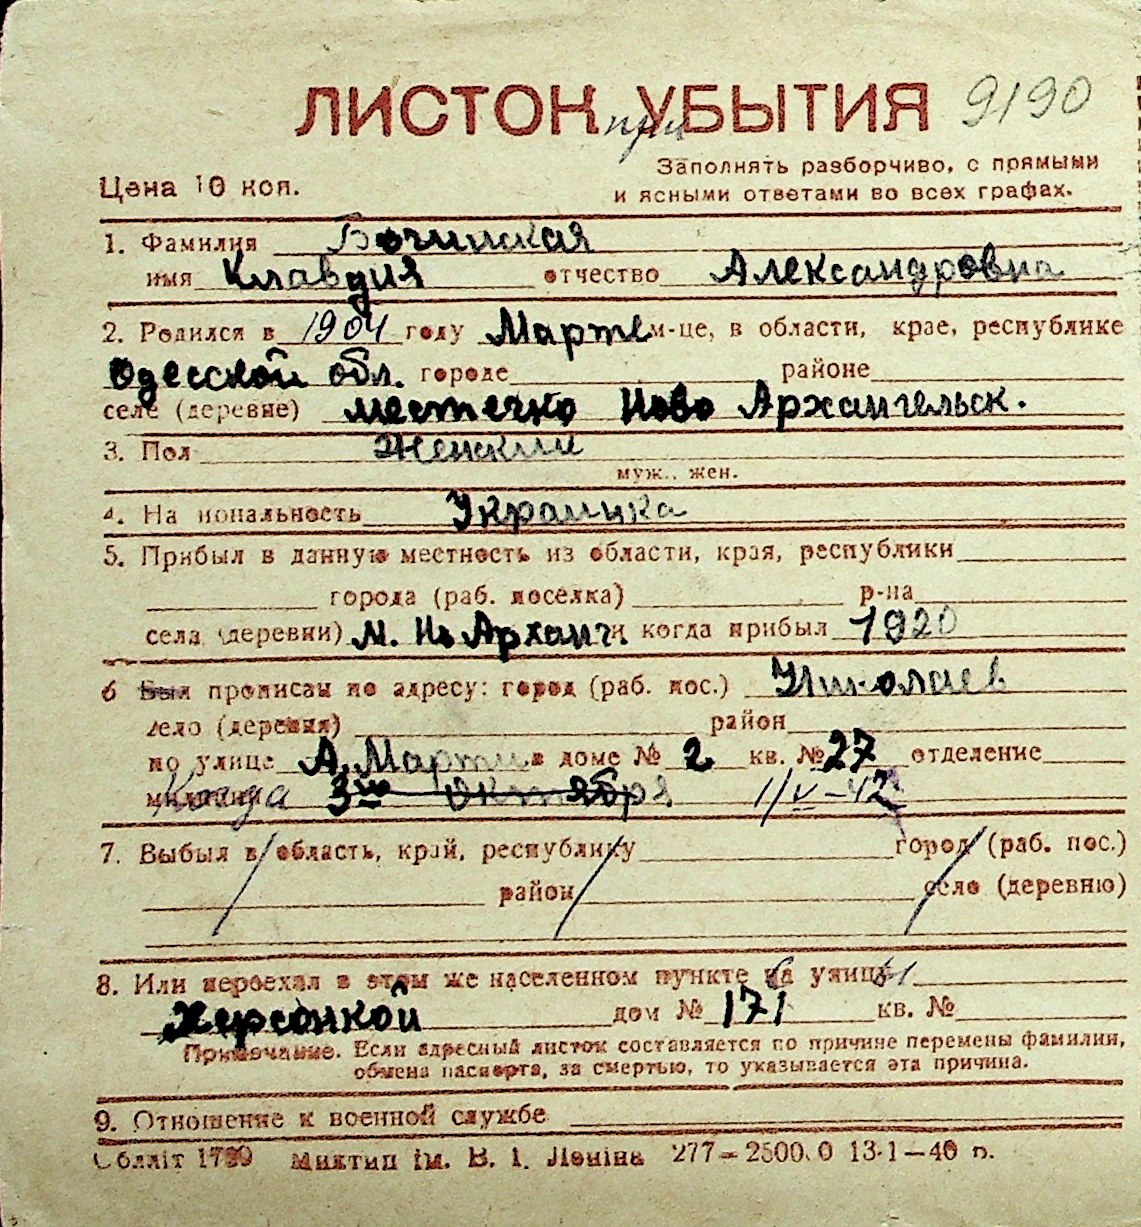 ЛИСТОК при УБЫТИЯ 9190
Заполнять разборчиво, с прямыми
Цена 10 коп. и ясными ответами во всех графах.
1. Фамилия
имя Клавдия отчество Александровна
2. Родился в 1904 году Марте м-це, в области, крае, республике
Одесской обл. городе районе
селе (деревне) местечко Ново Архангельск.
3. Пол Женский
муж., жен.
4. На иональность Украинка
5. Прибыл в данную местность из области, края, республики
города (раб. поселка) р-на
села (деревни) м. Н. Арханг. и когда прибыл 1920
6 Был прописан по адресу: город (раб. пос.) Николаев
село (деревня) район
по улице А. Марти в доме № 2 кв. № 27 отделение
милиции Когда 3го октября 1/V-42
7. Выбыл в область, край, республику город (раб. пос.)
район село (деревню)
8. Или переехал в этом же населенном пункте на улицы
Херсонкой дом № 171 кв. №
Примечание. Если адресный листок составляется по причине перемены фамилии,
обмена паспорта, за смертью, то указывается эта причина.
9. Отношение к военной службе
Обллiт 1799 Миктип iм. В. I. Ленiна 277-2500.0 13-1-40 п.